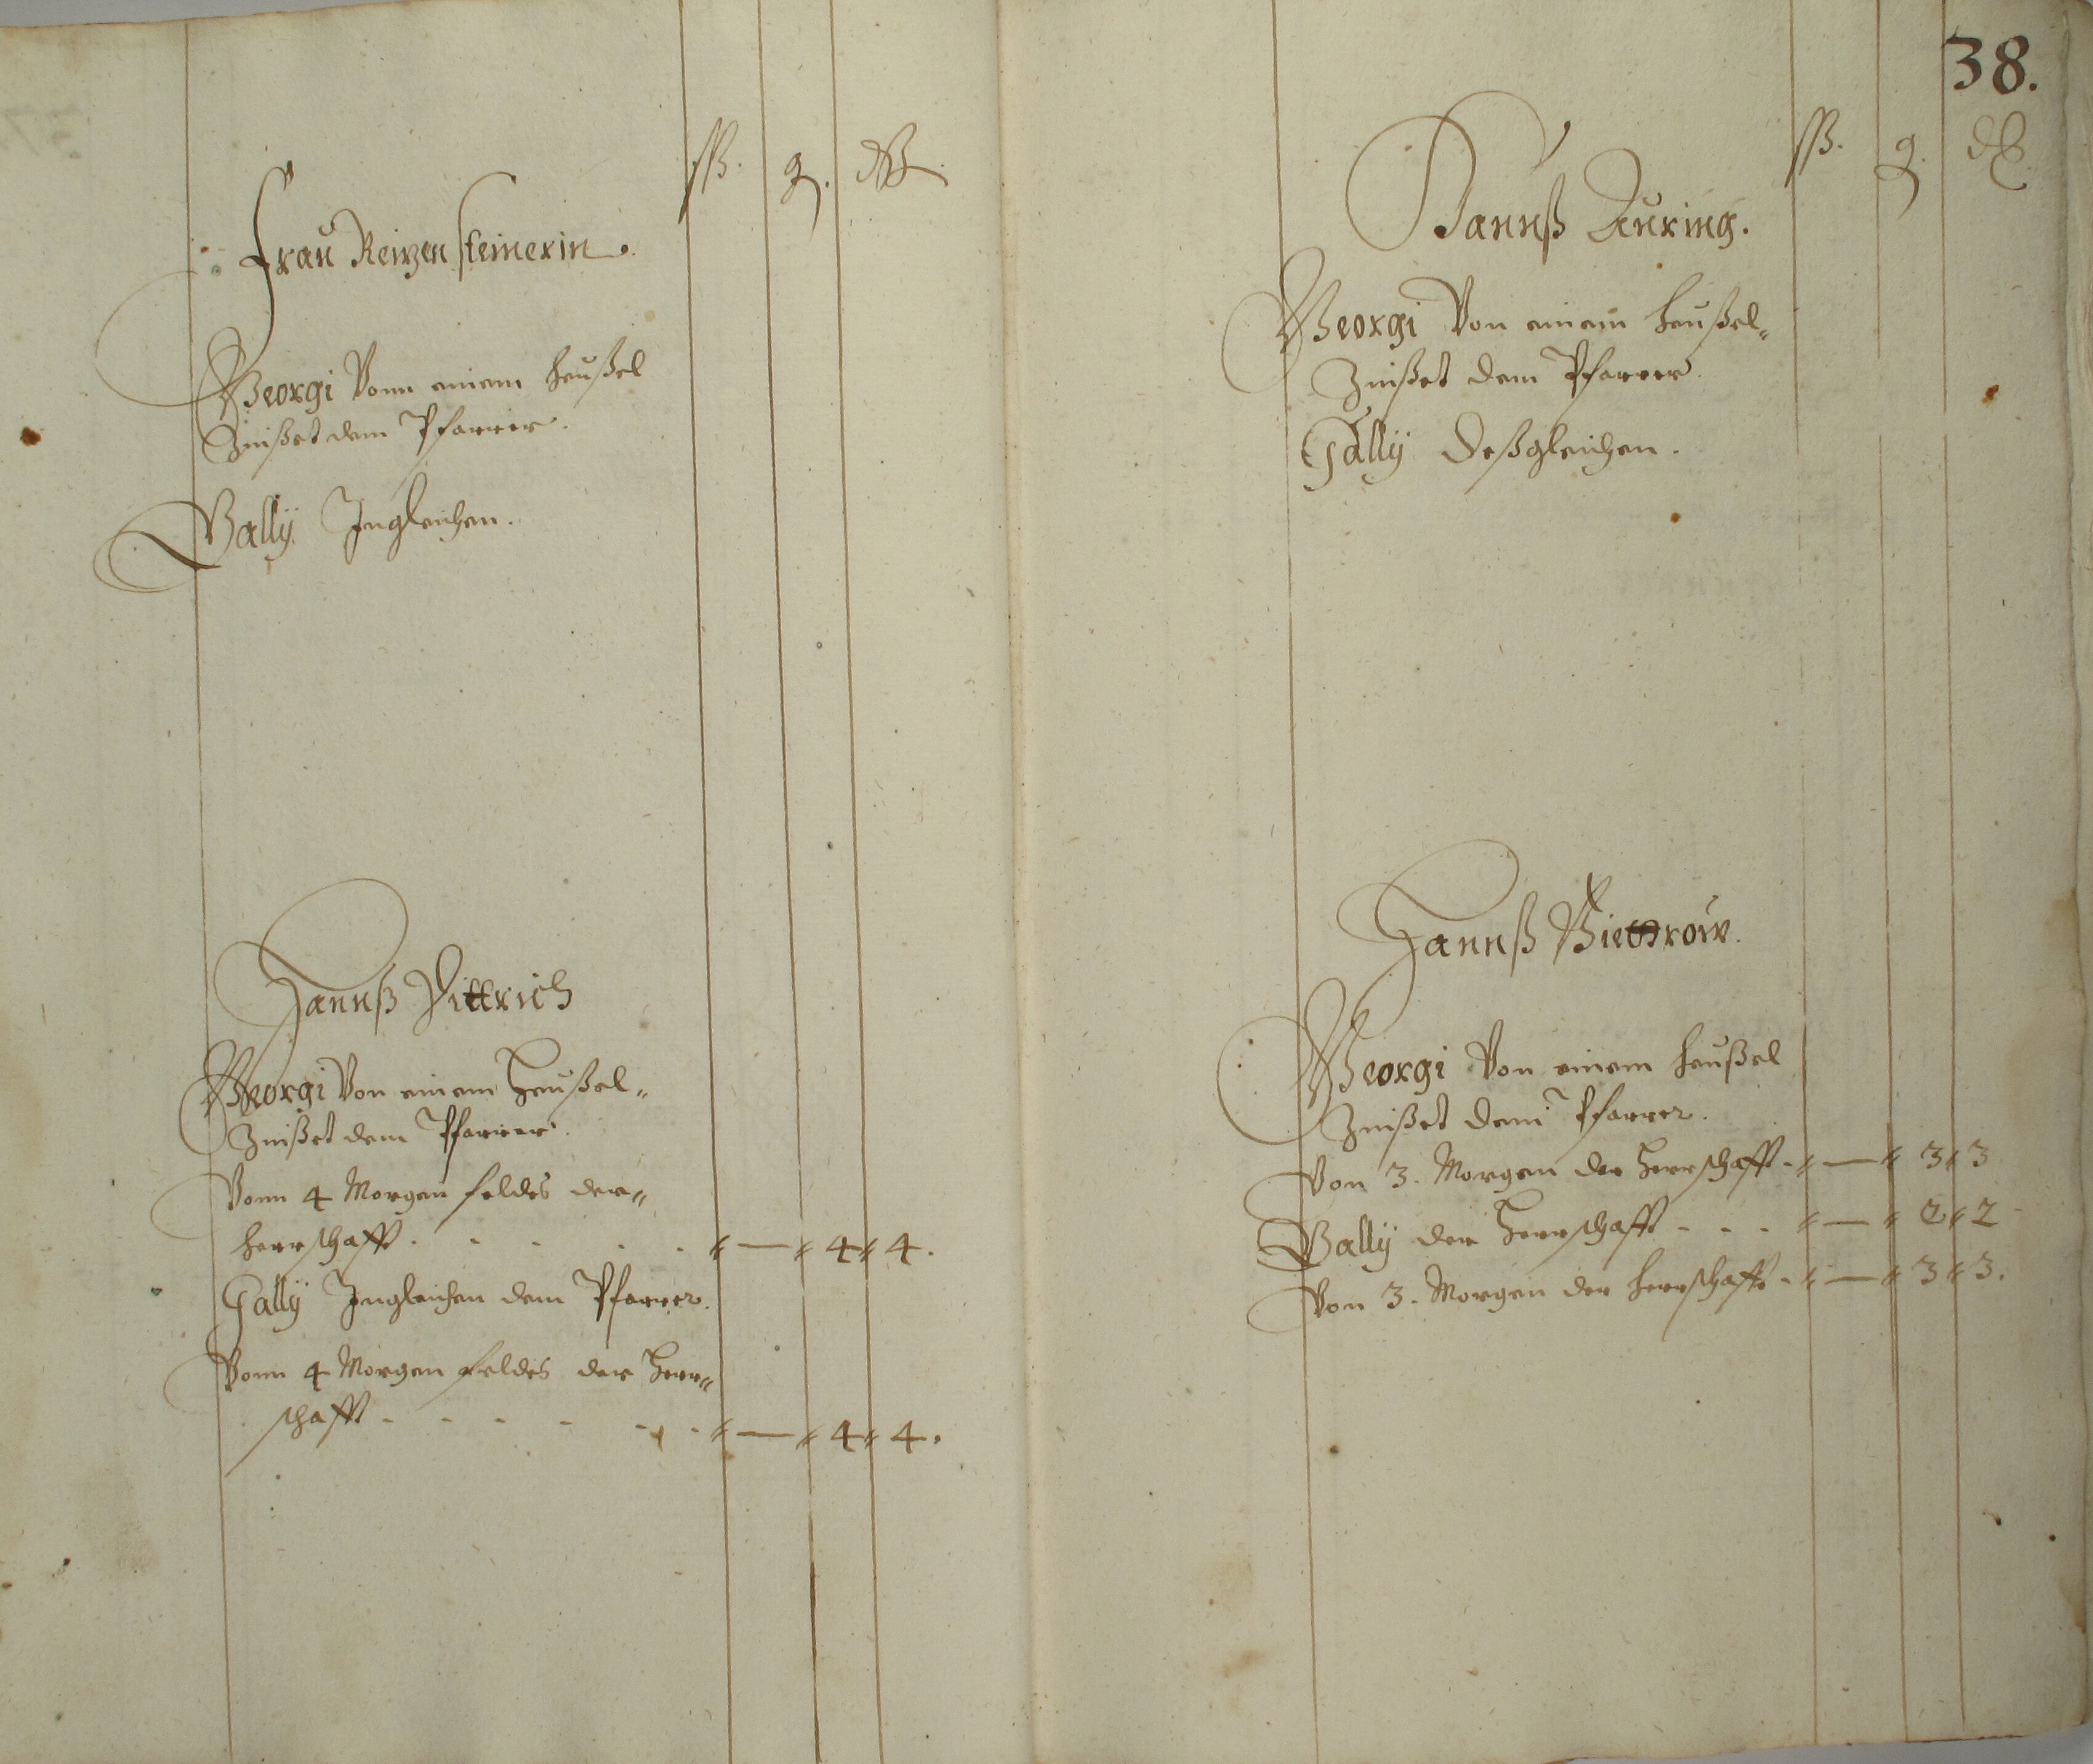 ſß. g. ₰
Frau Reitzensteinerin.
Georgi Vonn einem heußel
Zinßet dem Pfarrer.
Gally Ingleichen.
Hannß Dittrich
Georgi Von einem Heußel-
Zinßet dem Pfarrer.
Vonn 4 Morgen feldes der-
herrschafft . . . . . — 4 4.
Gally Ingleichen dem Pfarrer.
Vonn 4 Morgen feldes der Herr-
schafft - - - - - - — 4 4.
38.
ſß. g. ₰
Hannß During.
Georgi Von einem heußel-
Zinßet dem Pfarrer.
Gally deßgleichen.
Hannß
Georgi Von einem heußel
Zinßet dem Pfarrer.
Von 3. Morgen der Herrschafft - — 3 3
Gally der Herrschafft - - - — 2 2
Von 3. Morgen der herrschafft - — 3 3.